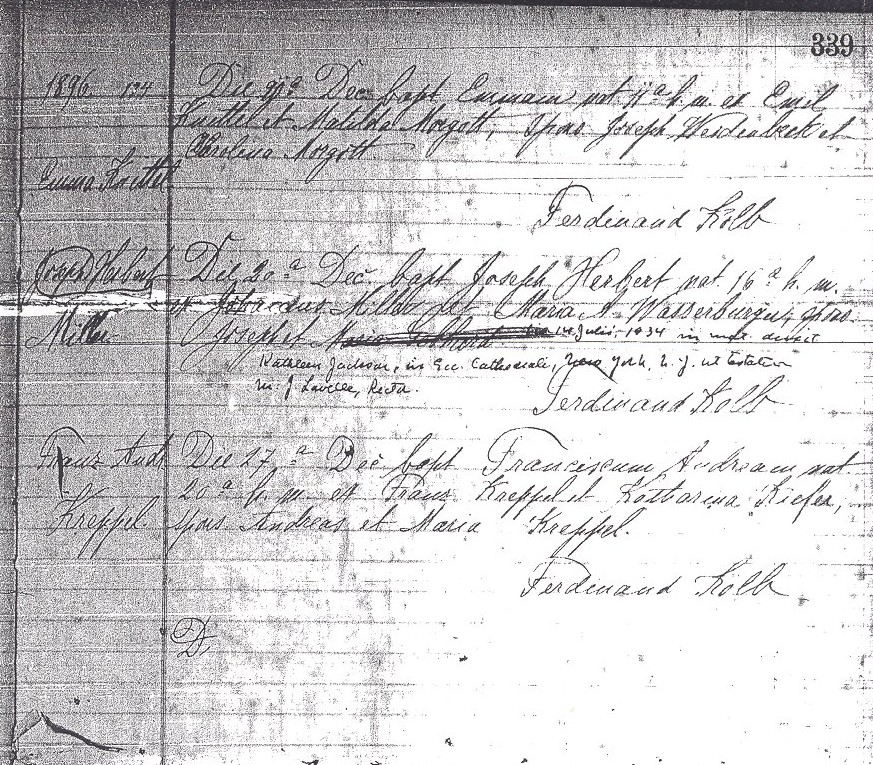 339
1896 124 Die 27a Dec. bapt Emmam nat 11a h. m. ex Emil
Knittel et Matilda Morgott, Spons. Joseph Weidenbeck et
Carolina Morgott
Emma Knittel
Ferdinand Kolb
Joseph Herbert Die 20a Dec. bapt Joseph Herbert nat. 16a h. m.
ex Johannes Miller et Maria A. Wasserburger, spons
Miller Joseph et Maria 14 Julii 1934 in mat. duxit
Kathleen Jackson, in Ecc. Cathedrali, New York, N. Y. ut testatur
M. J. Lavelle, Rector.
Ferdinand Kolb
Franz Andr Die 27a Dec bapt Franciscum Andream nat
20a h. m. ex Franz Kreppel et Katharina Kiefer,
Kreppel spons Andreas et Maria Kreppel.
Ferdinand Kolb
D